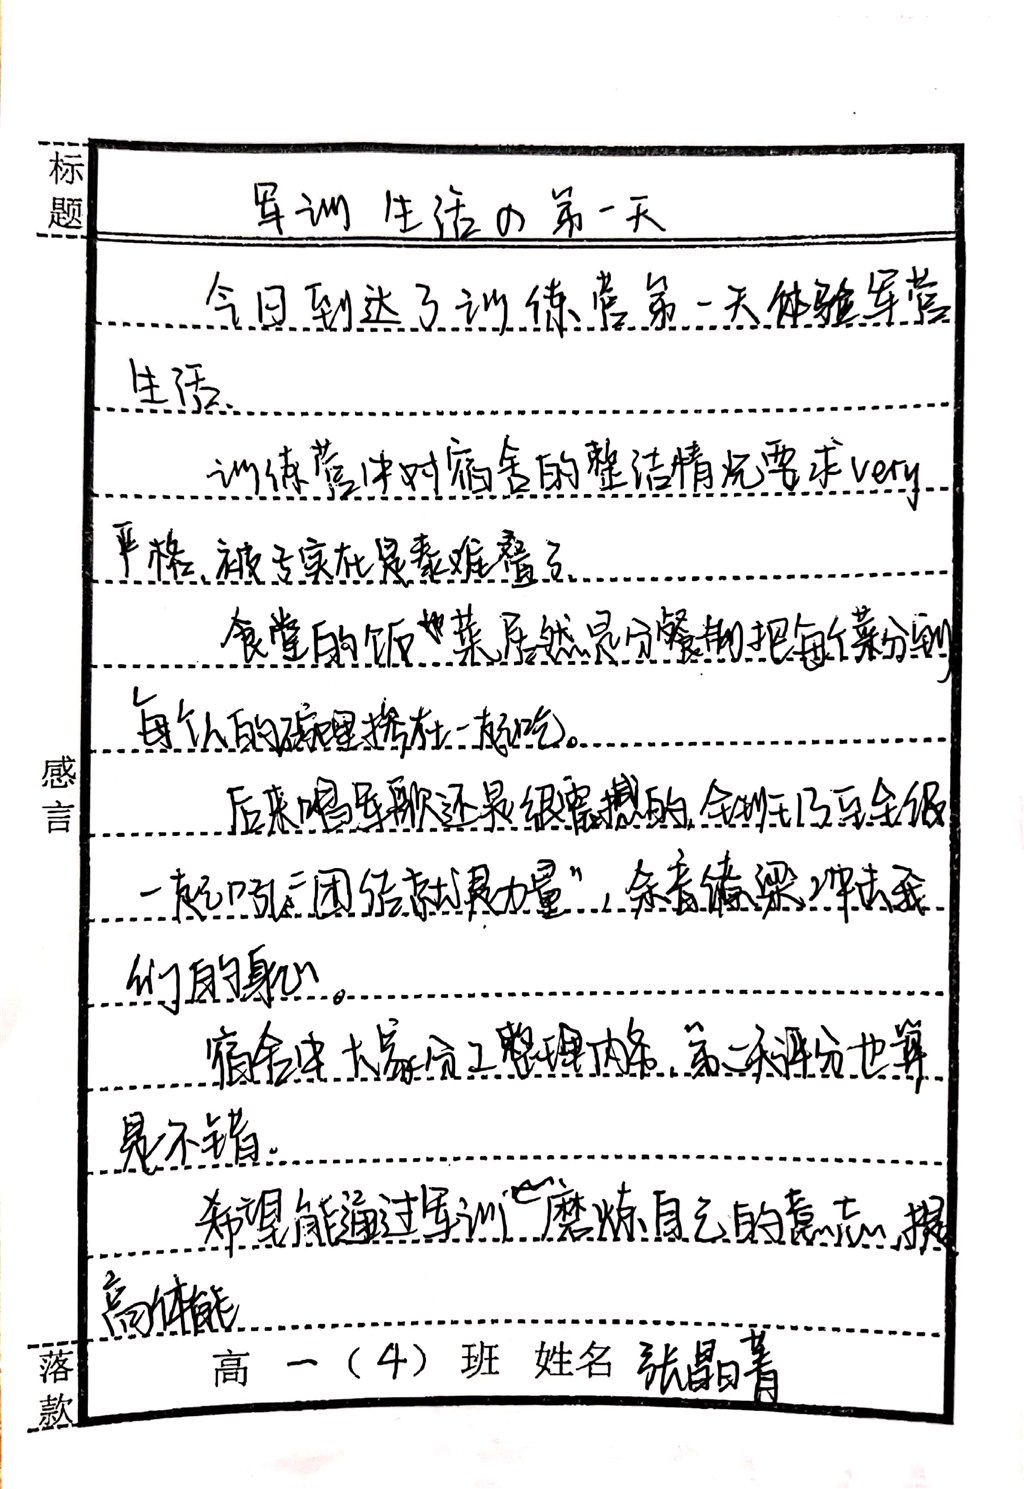 标题
军训生活の第一天
今日到达了训练营第一天体验军营
生活、
训练营中对宿舍的整洁情况要求very
严格、被子实在是太难叠了、
食堂的饭也菜居然是分餐制把每个菜分到
每个人的碗里挤在一起吃。
感言
后来唱军歌还是很震撼的,全班乃至全级
一起吼“团结就是力量”,余音绕梁,冲击我
们的身心。
宿舍中大家分工整理内务,第二天评分也算
是不错。
希望能通过军训磨炼自己的意志,提
高体能
落款
高一(4)班 姓名 张晶菁